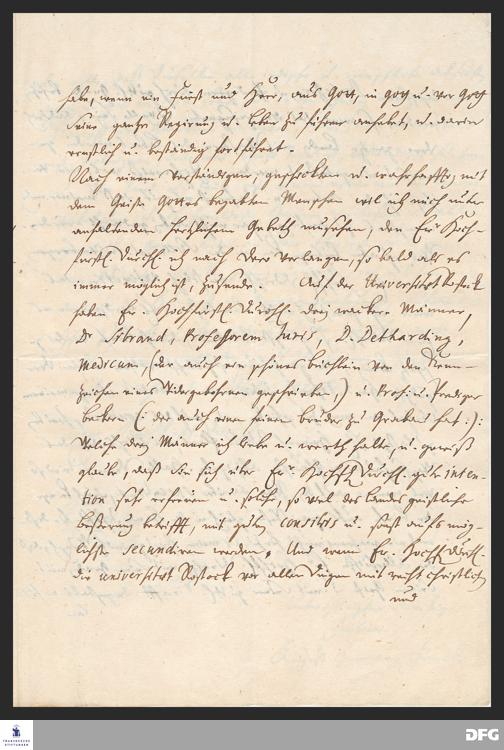 habe, wenn ein Fürst und Herr, aus Gott, in Gott u. vor Gott
seine gantze Regierung u. Leben zu führen anfahet, u. darin
ernstlich u. beständig fortfähret.
Nach einem verständigen, geschickten u. wahrhafftig mit
dem Geiste Gottes begabten Menschen wil ich mich unter
anhaltendem hertzlichem Gebeth umsehen, den Ew. Hoch-
fürstl. Durchl. ich nach Dero Verlangen, so bald als es
immer möglich ist, zusende. Auf der Universität Rostock
haben Ew. Hochfürstl. Durchl. drey wackere Männer,
Dr Sibrand, Professorem Juris, D. Detharding,
Medicum, (der auch ein schönes büchlein von den Kenn-
zeichen eines Widergebohrnen geschrieben,) u. Prof. u. Prediger
Beckern (: der auch einen feinen bruder zu Grabau hat :):
Welche drey Männer ich liebe u. werth halte, u. gewiß
glaube, daß sie sich über Ew. Hochf. Durchl. gute inten-
tion sehr erfreuen u. solche, so viel des Landes geistliche
beßerung betrifft, mit guten consiliis u. sonst aufs mög-
lichste secundiren werden. Und wenn Ew. Hochf. Durchl.
die Universität Rostock vor allen Dingen mit recht christlichen
und
FRANCKESCHE
STIFTUNGEN
DFG